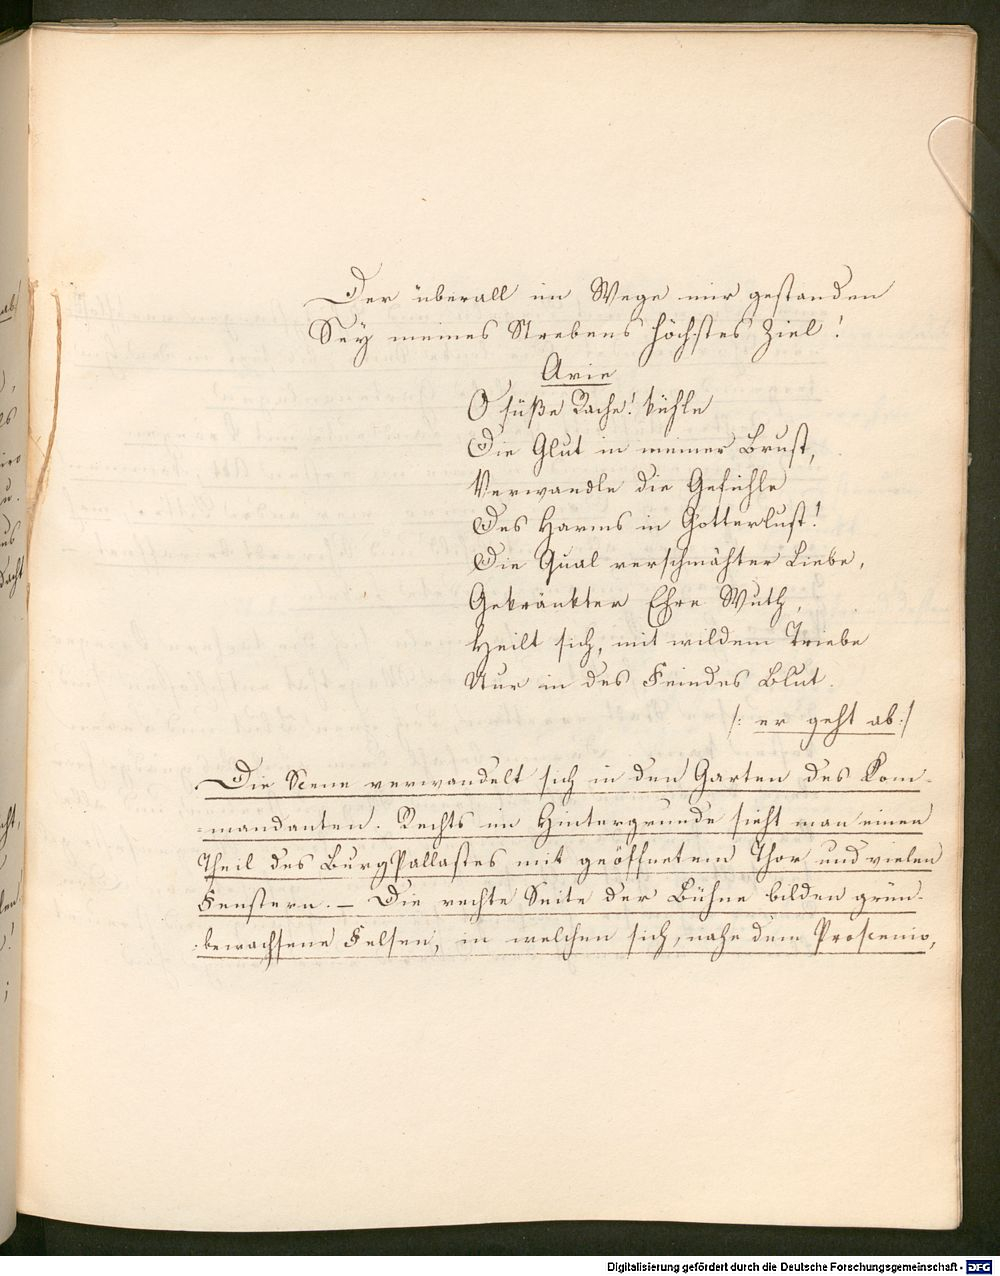 Der überall im Wege mir gestanden
Sey meines Strebens höchstes Ziel!
Arie
O süße Rache! kühle
Die Glut in meiner Brust,
Verwandle die Gefühle
Des Harms in Götterlust!
Die Qual verschmähter Liebe,
Gekränkter Ehre Wuth,
Heilt sich, mit wildem Triebe
Nur in des Feindes Blut.
/: er geht ab :/
Die Scene verwandelt sich in den Garten des Kom-
-mandanten. Rechts im Hintergrunde sieht man einen
Theil des BurgPallastes mit geöffnetem Thor und vielen
Fenstern. – Die rechte Seite der Bühne bilden grün-
-bewachsene Felsen, in welchen sich, nahe dem Proscenio,
Digitalisierung gefördert durch die Deutsche Forschungsgemeinschaft - DFG